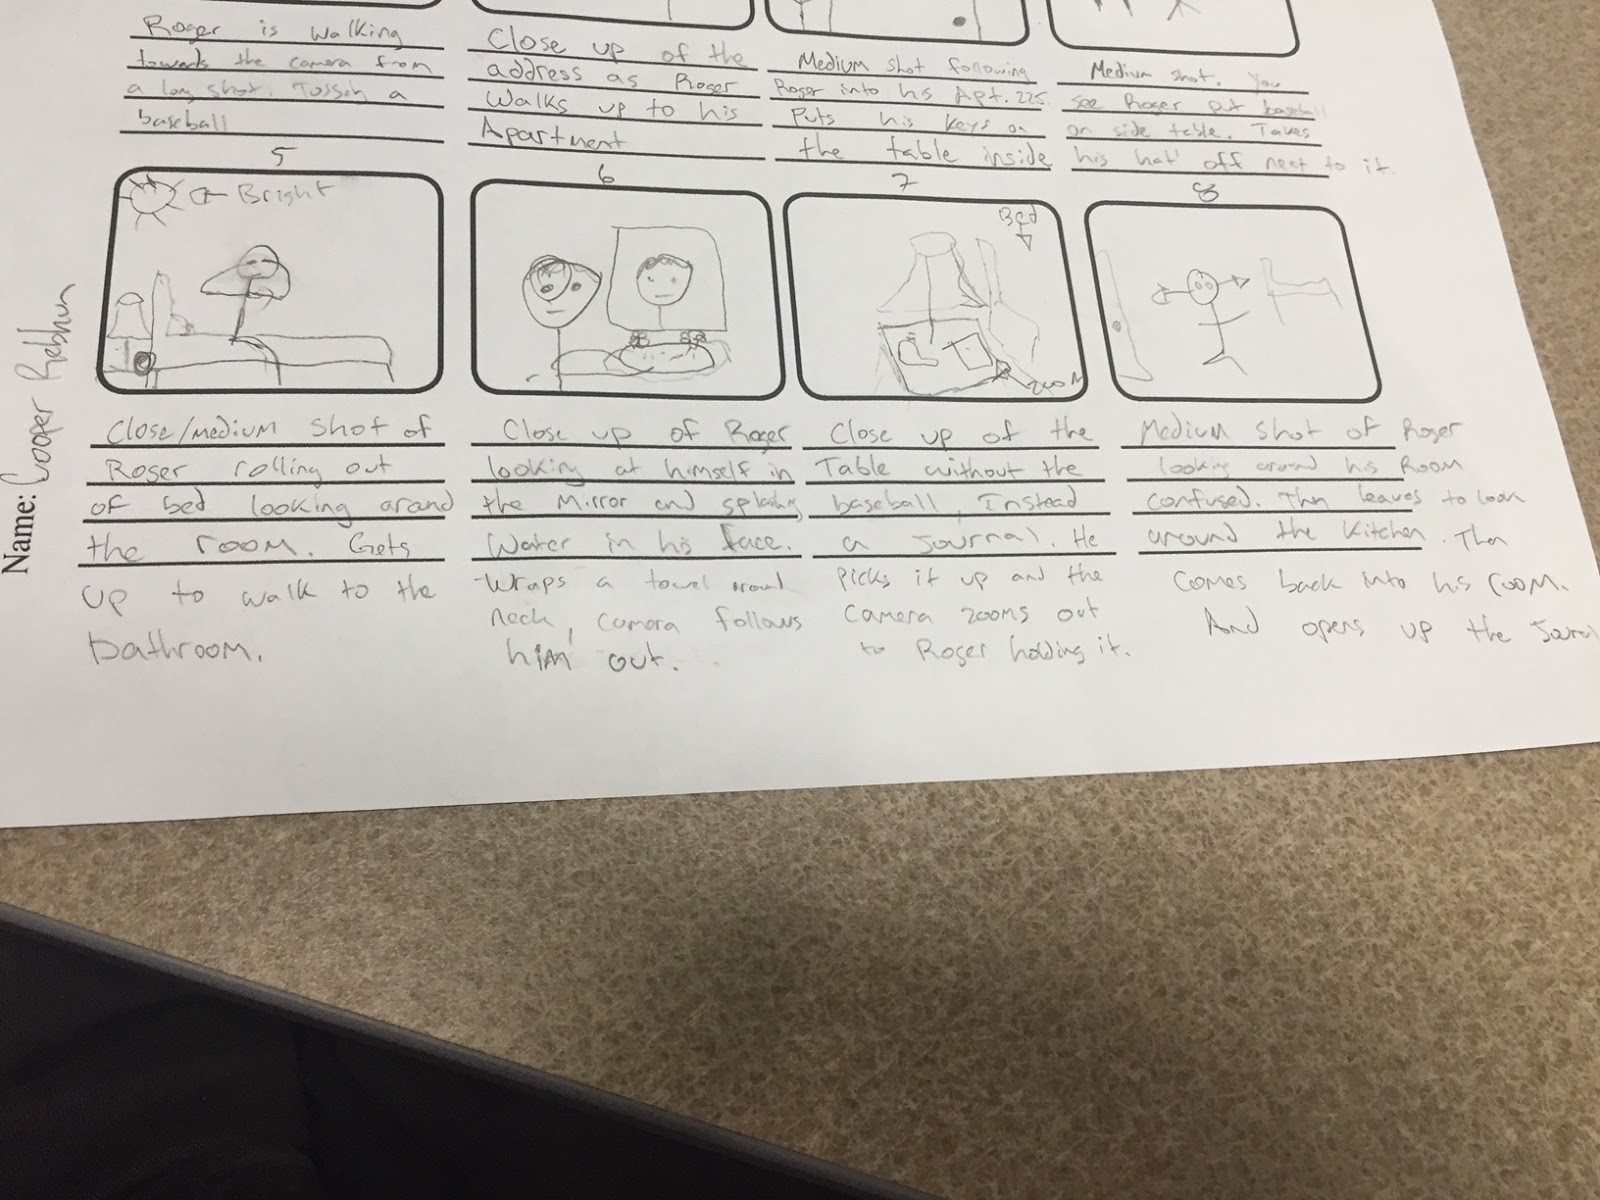 Roger is walking
towards the camera from
a long shot. Tossin a
baseball
Close up of the
address as Roger
Walks up to his
Apartment
Medium shot following
Roger into his Apt. 225.
Puts his keys on
the table inside
Medium shot. You
see Roger put baseball
on side table. Takes
his hat off next to it.
5
Bright
Close/medium shot of
Roger rolling out
of bed looking around
the room. Gets
up to walk to the
bathroom.
6
Close up of Roger
looking at himself in
the Mirror and splashing
Water in his face.
-Wraps a towel around
neck, camera follows
him out.
7
Bed
zoom
Close up of the
Table without the
baseball, Instead
a journal. He
picks it up and the
camera zooms out
to Roger holding it.
8
Medium shot of Roger
looking around his Room
confused. Then leaves to look
around the kitchen. Then
comes back into his room.
And opens up the
Name: Cooper Rebhun